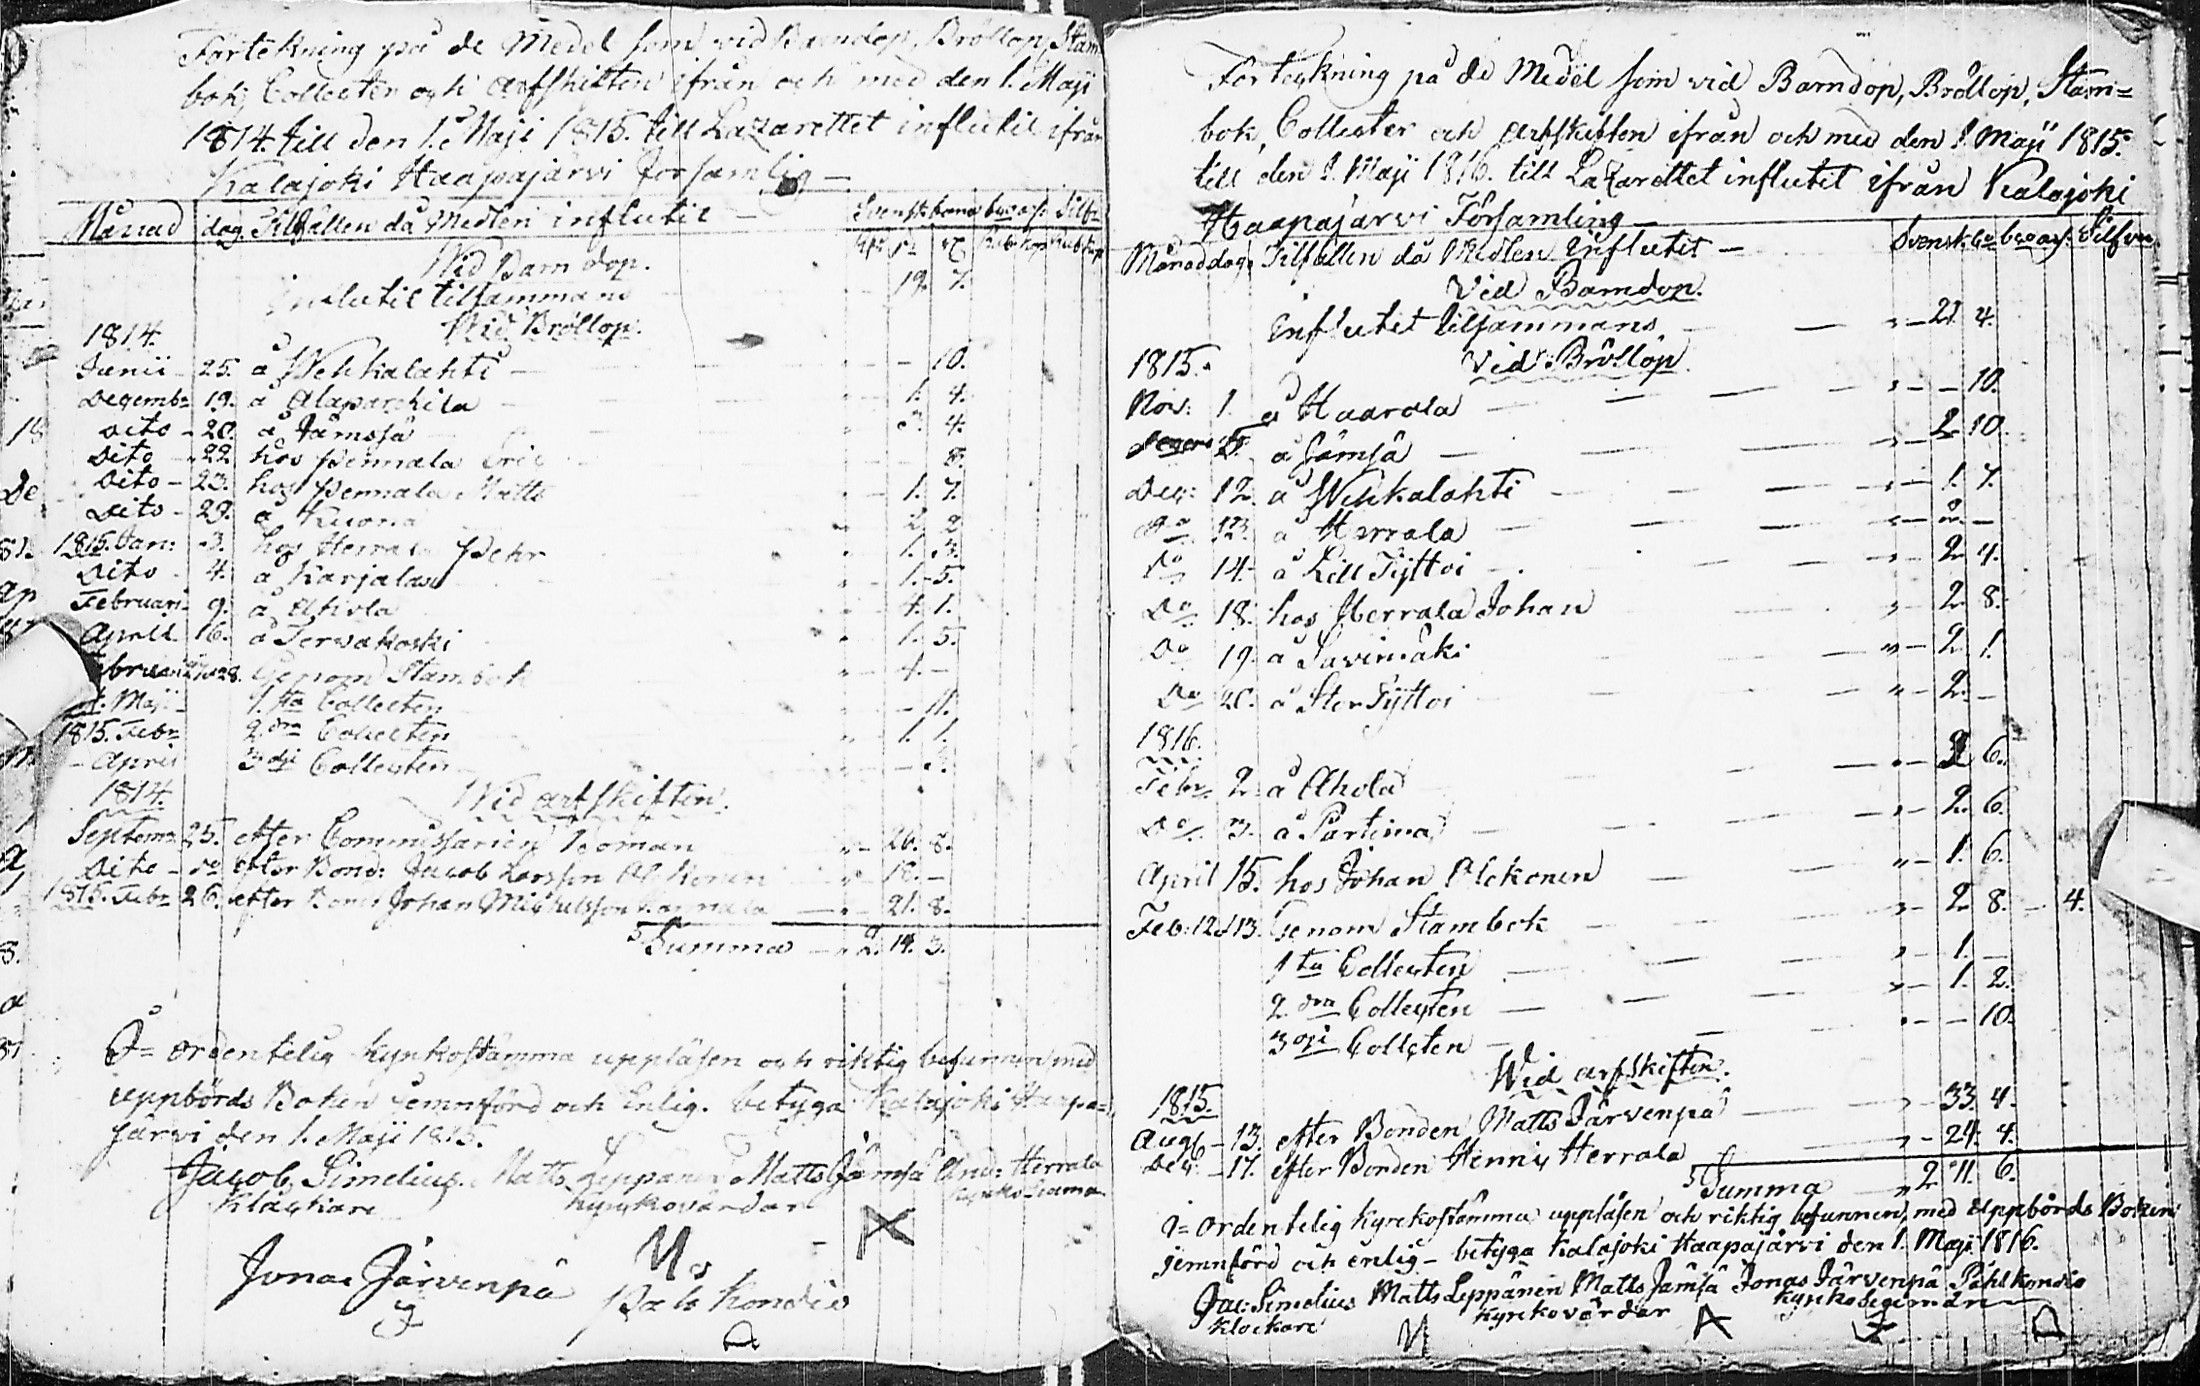 Förtekning på de Medel som vid Barndop, Bröllop, Stam-
bok, Collecter och Arfskiften ifrån och med den 1. Maji
1814. till den 1. Maji 1815. till Lazarettet influtit ifrån
Kalajoki Haapajärvi Församlig
Månad dag. Tilfällen då Medlen influtit Svensk banco Silf:
Vid Barndop.
Influtit tillsammans 19. 7.
1814. Vid Bröllop.
Junii 25. å Wehkalahti 10.
Decemb: 19. å Alaparkkila 1. 4.
Dito 20. å Jämsä 3. 4.
Dito 22 hos Pennala Eric 8.
Dito 23. hos Pennala Matts 1. 7.
Dito 29. å Kuona 2. 2.
1815. Jan: 3. hos Herrala Pehr 1. 3.
Dito 4. å Karjalax 1. 5.
Februari 9. å Ahola 4. 1.
April 16. å Tervakoski 1. 5.
Februari Genom Stambok 4. -
1. Maji 1.sta Collecten 11.
1815. Febr 2.dra Collecten 1. 1.
April 3dji Collecten
1814. Wid arfskiften.
Septem: 25. efter Commissarien Roman 26. 8.
Dito do efter Bond: Jacob Larsson 16. -
1815. Febr 26. efter Bond Johan Michelsson 21. 8.
Summa 2. 14. 3.
I ordentelig kyrkostämma uppläsen och riktig befunnen med
uppbörds Boken jemnförd och Enlig. betyga Kalajoki Haapa-
järvi den 1. Maji 1815.
Jacob Simelius. Matts Leppänen Matts Jämsä And: Herrala
Klåckare Kyrckovärdar
Jonas Järvenpä Påhl Kondio
Förteckning på de Medel som vid Barndop, Bröllop, Stam=
bok, Collecter och Arfskiften ifrån och med den 1 Maji 1815.
till den 1. Maji 1816. till Lazarettet influtit ifrån Kalajoki
Haapajärvi Församling
Månad dag. Tilfällen då Medlen Influtit Svensk Silfver
Vid Barndop.
Influtit tilsammans 21. 4.
1815. Vid Bröllop
Nov: 1. å Haarala 10.
5. å Jämsä 2 10
Dec: 12. å Wehkalahti 1. 7.
Do 13. å Herrala 2. -
Do 14. å Lill Tyttoi 2 4.
Do 18. hos Herrala Johan 2. 8.
Do 19. å Savimäki 2. 1.
Do 20. å Stor Tyttoi 2. -
1816.
Febr. 2 å Ahola 6.
Do 3. å Partima 2. 6.
April 15. hos Johan Alckonen 1. 6.
Feb: 12 13. Genom Stambok 2 8. 4.
1ta Collecten 1. -
2dra Collecten 1. 2.
3dji Collecten 10.
Wid arfskiften.
1815.
Aug: 13 efter Bonden Matts Järvenpä 33. 4.
Dec: 17. efter Bonden Henric Herrala 24. 4.
Summa 2 11. 6.
I= ordentelig Kyrckostämma uppläsen och riktig befunnen, med Uppbörds Boken
jemnförd och enlig - betyga Kalajoki Haapajärvi den 1. Maji 1816.
Jac: Simelius Matts Leppänen Matts Jämsä Jonas Järvenpä Påhl Kondio
Klockare Kyrckovärdar